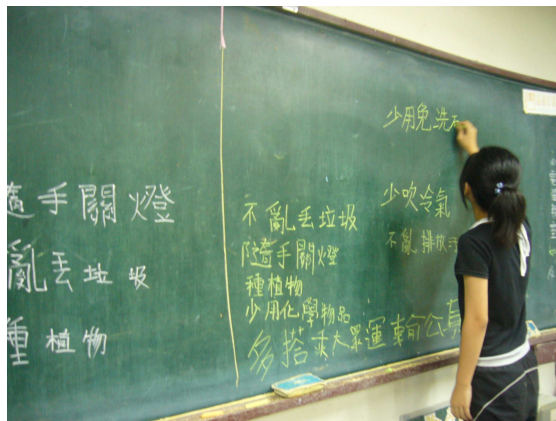 隨手關燈
亂丟垃圾
種植物
不亂丟垃圾
隨手關燈
種植物
少用化學物品
多搭乘大眾運輸公具
少用免洗
少吹冷氣
不亂排放